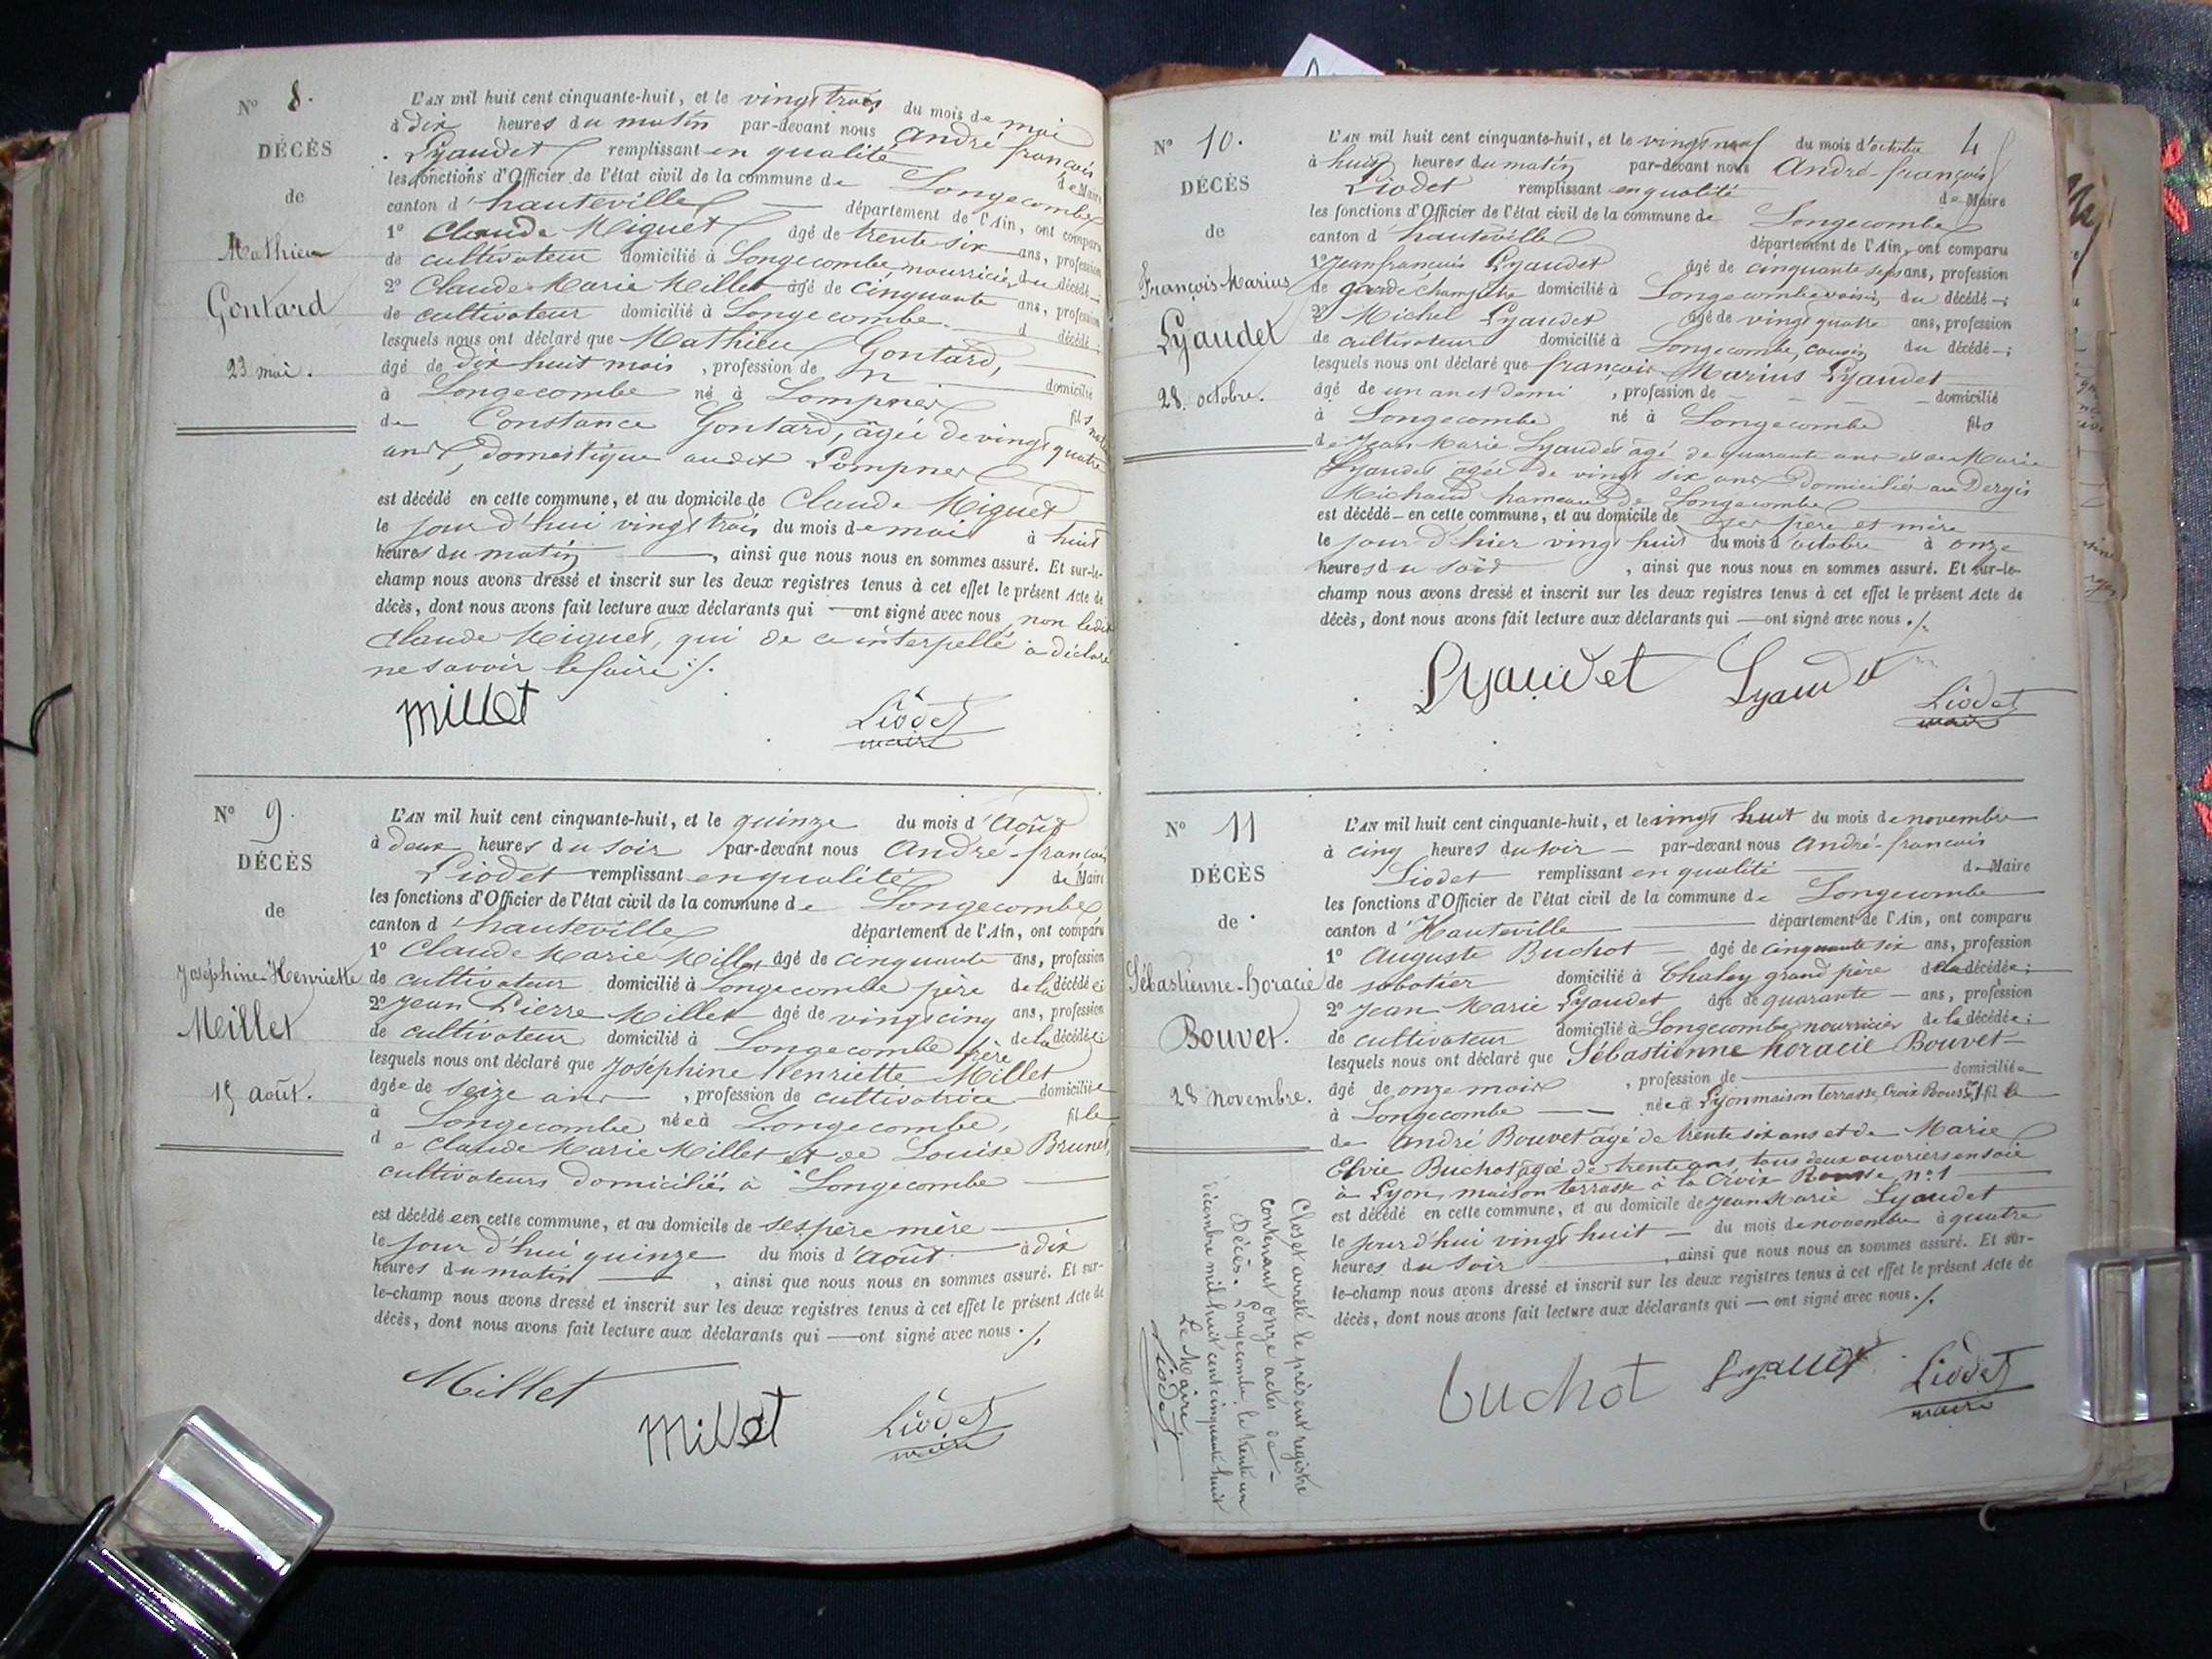 N° 8.
DÉCÈS
de
Mathieu
Gontard
23 mai.
L'AN mil huit cent cinquante-huit, et le vingt trois du mois de mai
à dix heures du matin par-devant nous André françois
Lyaudet remplissant en qualité de Maire
les fonctions d'Officier de l'état civil de la commune de Longecombe
canton d'hauteville département de l'Ain, ont comparu
1° Claude Miguet âgé de trente six ans, profession
de cultivateur domicilié à Longecombe, nourricier du décédé
2° Claude Marie Millet âgé de cinquante ans, profession
de cultivateur domicilié à Longecombe. d décédé;
lesquels nous ont déclaré que Mathieu Gontard,
âgé de dix huit mois, profession de domicilié
à Longecombe né à Lompner fils
de Constance Gontard, âgée de vingt quatre
ans, domestique audit Lompner
est décédé en cette commune, et au domicile de Claude Miguet
le jour d'hui vingt trois du mois de mai à huit
heures du matin, ainsi que nous nous en sommes assuré. Et sur-le-
champ nous avons dressé et inscrit sur les deux registres tenus à cet effet le présent Acte de
décès, dont nous avons fait lecture aux déclarants qui — ont signé avec nous non ledit
Claude Miguet, qui de ce interpellé a déclaré
ne savoir le faire ./.
Millet Liodet
maire
N° 9.
DÉCÈS
de
Joséphine-Henriette
Millet
15 août.
L'AN mil huit cent cinquante-huit, et le quinze du mois d'Août
à deux heures du soir par-devant nous André-françois
Liodet remplissant en qualité de Maire
les fonctions d'Officier de l'état civil de la commune de Longecombe
canton d'hauteville département de l'Ain, ont comparu
1° Claude Marie Millet âgé de cinquante ans, profession
de cultivateur domicilié à Longecombe père de la décédée
2° Jean Pierre Millet âgé de vingt cinq ans, profession
de cultivateur domicilié à Longecombe frère de la décédée
lesquels nous ont déclaré que Joséphine Henriette Millet
âgée de seize ans, profession de cultivatrice domiciliée
à Longecombe née à Longecombe, fille
de Claude Marie Millet et de Louise Brunet,
cultivateurs domiciliés à Longecombe
est décédée en cette commune, et au domicile de ses père mère
le jour d'hui quinze du mois d'août à dix
heures du matin, ainsi que nous nous en sommes assuré. Et sur-
le-champ nous avons dressé et inscrit sur les deux registres tenus à cet effet le présent Acte de
décès, dont nous avons fait lecture aux déclarants qui — ont signé avec nous ./.
Millet
Millet Liodet
maire
4
N° 10.
DÉCÈS
de
François-Marius
Lyaudet
28. octobre.
L'AN mil huit cent cinquante-huit, et le vingt neuf du mois d'octobre
à huit heures du matin par-devant nous André-françois
Liodet remplissant en qualité de Maire
les fonctions d'Officier de l'état civil de la commune de Longecombe
canton d'hauteville département de l'Ain, ont comparu
1° Jean françois Lyaudet âgé de cinquante sept ans, profession
de garde champêtre domicilié à Longecombe voisin du décédé;
2° Michel Lyaudet âgé de vingt quatre ans, profession
de cultivateur domicilié à Longecombe, cousin du décédé;
lesquels nous ont déclaré que françois Marius Lyaudet
âgé de un an et demi, profession de domicilié
à Longecombe né à Longecombe fils
de Jean Marie Lyaudet âgé de quarante ans et de Marie
Lyaudet âgée de vingt six ans domiciliés au Dergis
Michaud hameau de Longecombe
est décédé en cette commune, et au domicile de ses père et mère
le jour d'hier vingt huit du mois d'octobre à onze
heures du soir, ainsi que nous nous en sommes assuré. Et sur-le-
champ nous avons dressé et inscrit sur les deux registres tenus à cet effet le présent Acte de
décès, dont nous avons fait lecture aux déclarants qui — ont signé avec nous ./.
Lyaudet Lyaudet Liodet
maire
N° 11
DÉCÈS
de
Sébastienne-horacie
Bouvet.
28 novembre.
L'AN mil huit cent cinquante-huit, et le vingt huit du mois de novembre
à cinq heures du soir par-devant nous André-françois
Liodet remplissant en qualité de Maire
les fonctions d'Officier de l'état civil de la commune de Longecombe
canton d'Hauteville département de l'Ain, ont comparu
1° Auguste Buchot âgé de cinquante six ans, profession
de sabotier domicilié à Chaley grand père de la décédée;
2° Jean Marie Lyaudet âgé de quarante ans, profession
de cultivateur domicilié à Longecombe, nourricier de la décédée;
lesquels nous ont déclaré que Sébastienne horacie Bouvet
âgé de onze mois, profession de domiciliée
à Longecombe née à Lyon maison terrasse, Croix Rousse, n° 1 fille
de André Bouvet âgé de trente six ans et de Marie
Elvie Buchot âgée de trente ans, tous deux ouvriers en soie
à Lyon, maison terrasse à la Croix Rousse, n° 1
est décédé en cette commune, et au domicile de Jean Marie Lyaudet
le jour d'hui vingt huit du mois de novembre à quatre
heures du soir, ainsi que nous nous en sommes assuré. Et sur-
le-champ nous avons dressé et inscrit sur les deux registres tenus à cet effet le présent Acte de
décès, dont nous avons fait lecture aux déclarants qui — ont signé avec nous ./.
buchot Lyaudet Liodet
maire
Clos et arrêté le présent registre
contenant onze actes de
Décès. Longecombe, le trente un
décembre mil huit cent cinquante huit
Le Maire,
Liodet